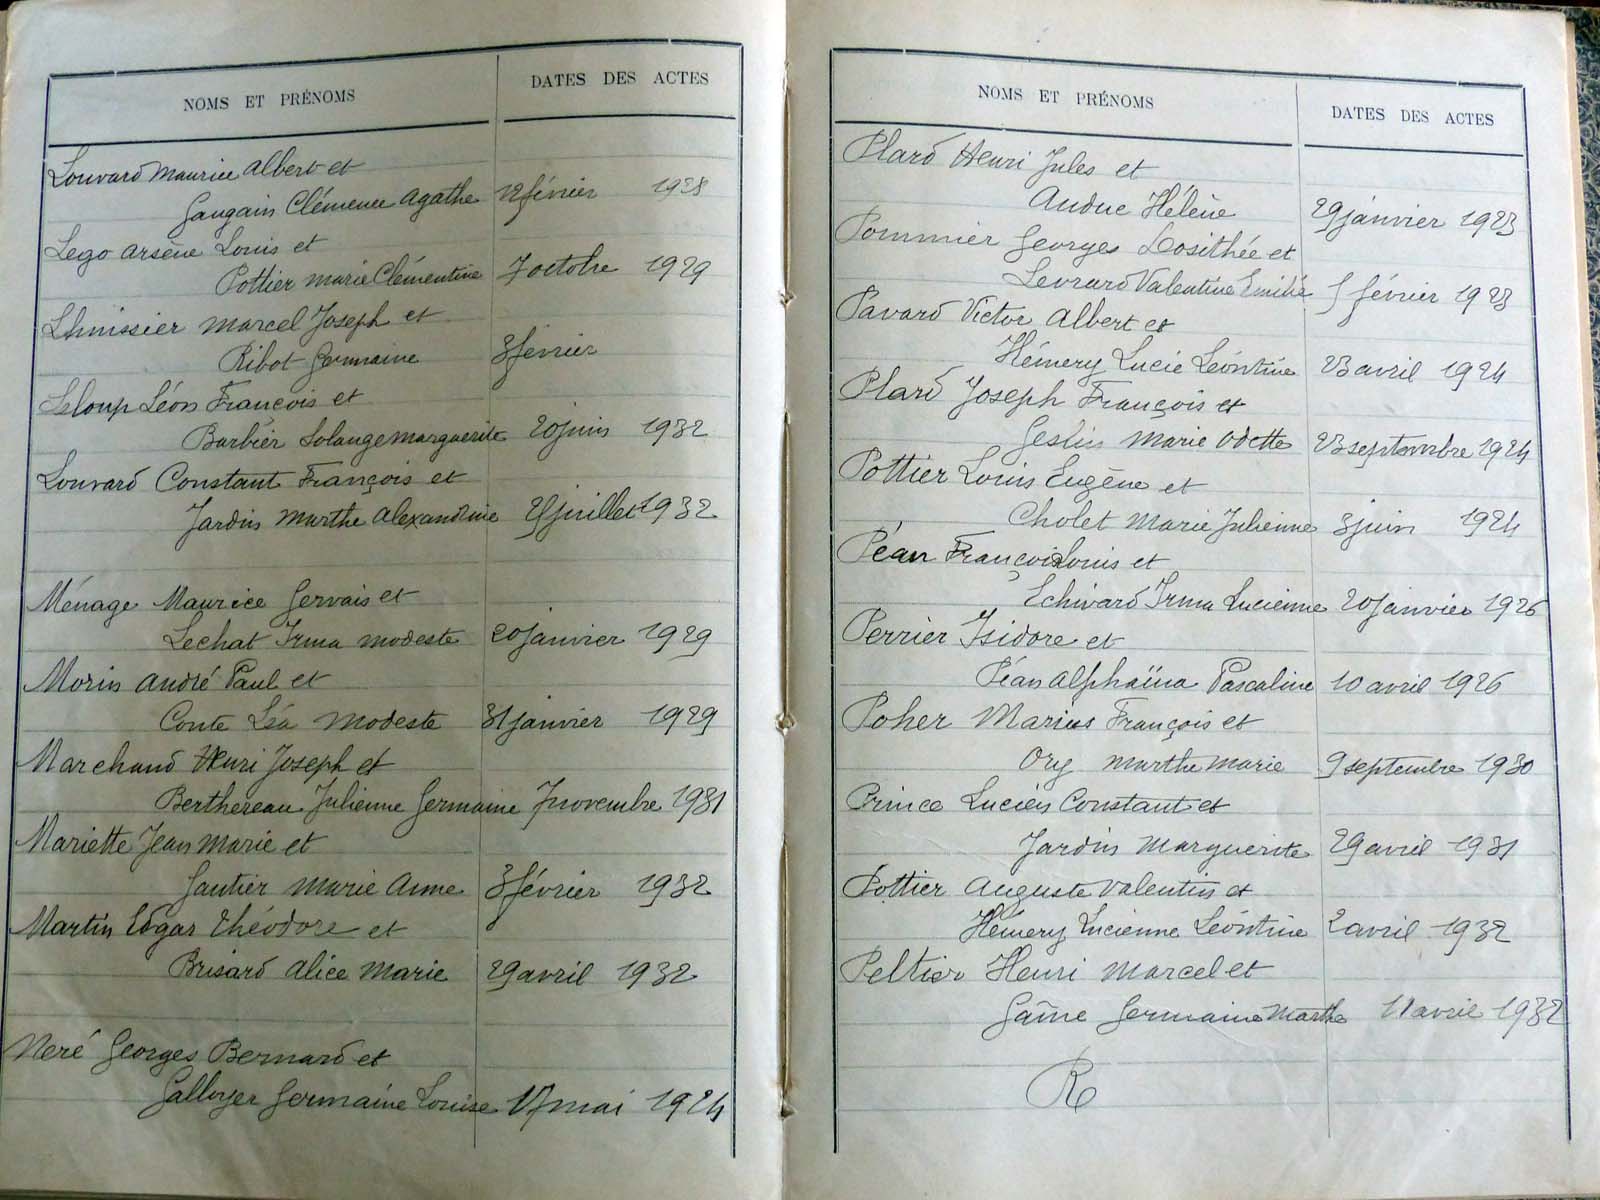 NOMS ET PRÉNOMS DATES DES ACTES
Louvard Maurice Albert et
Gaugain Clémence Agathe 12 février 1928
Lego Arsène Louis et
Pottier Marie Clémentine 7 octobre 1929
Lhuissier Marcel Joseph et
Ribot Germaine 3 février
Leloup Léon François et
Barbier Solange Marguerite 20 juin 1932
Louvard Constant François et
Jardin Marthe Alexandrine juillet 1932
Ménage Maurice Gervais et
Lechat Irma Modeste 20 janvier 1929
Morin André Paul et
Conte Léa Modeste 31 janvier 1929
Marchand Henri Joseph et
Berthereau Julienne Germaine 7 novembre 1931
Mariette Jean Marie et
Gautier Marie Anne 3 février 1932
Martin Edgar Théodore et
Brisard Alice Marie 29 avril 1932
Neré Georges Bernard et
Galloyer Germaine Louise 17 mai 1924
NOMS ET PRÉNOMS DATES DES ACTES
Plard Henri Jules et
Hélène 29 janvier 1923
Pommier Georges Dosithée et
Levrard Valentine Emilie 5 février 1923
Pavard Victor Albert et
Hémery Lucie Léontine 23 avril 1924
Plard Joseph François et
Geslin Marie Odette 23 septembre 1924
Pottier Louis Eugène et
Cholet Marie Julienne 3 juin 1924
Péan François Louis et
Echivard Irma Lucienne 20 janvier 1926
Perrier Isidore et
Péan Alphaïna Pascaline 10 avril 1926
Poher Marius François et
Ory Marthe Marie 9 septembre 1930
Prince Lucien Constant et
Jardin Marguerite 29 avril 1931
Pottier Auguste Valentin et
Hémery Lucienne Léontine 2 avril 1932
Peltier Henri Marcel et
Gaîne Germaine Marthe 11 avril 1932
R